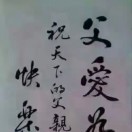 父愛为
祝天下的父親
快樂